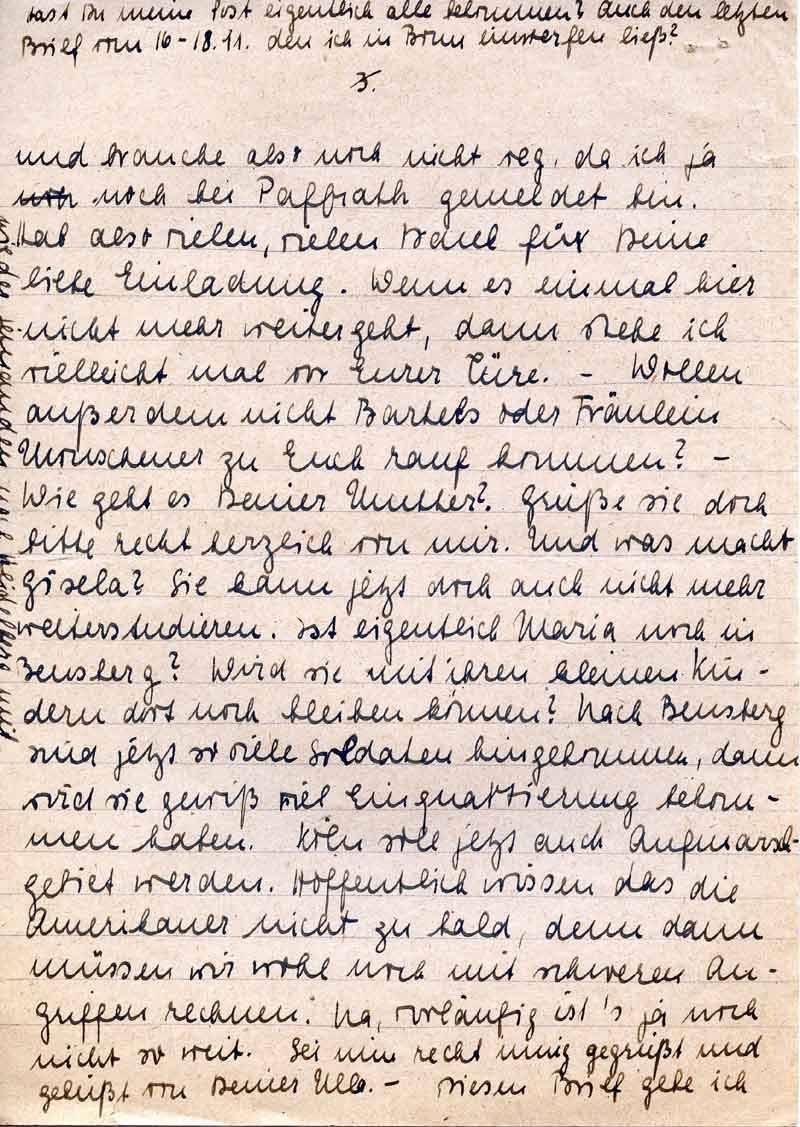 Hast Du meine Post eigentlich alle bekommen? Auch den letzten
Brief vom 16-18.11. den ich in Bonn einwerfen ließ?
3.
und brauche also noch nicht reg. da ich ja
noch bei Paffrath gemeldet bin.
Hab also vielen, vielen Dank für Deine
liebe Einladung. Wenn es einmal hier
nicht mehr weitergeht, dann stehe ich
vielleicht mal vor Eurer Türe. – Wollen
außerdem nicht Bartels oder Fräulein
zu Euch rauf kommen? –
Wie geht es Deiner Mutter? Grüße sie doch
bitte recht herzlich von mir. Und was macht
Gisela? Sie kann jetzt doch auch nicht mehr
weiterstudieren. Ist eigentlich Maria noch in
Bensberg? Wird sie mit ihren kleinen Kin-
dern dort noch bleiben können? Nach Bensberg
sind jetzt so viele Soldaten hingekommen, dann
wird sie gewiß viel Einquartierung bekom-
men haben. Köln soll jetzt auch Aufmarsch-
gebiet werden. Hoffentlich wissen das die
Amerikaner nicht zu bald, denn dann
müssen wir wohl noch mit schweren An-
griffen rechnen. Na, vorläufig ist's ja noch
nicht so weit. Sei nun recht innig gegrüßt und
geküßt von Deiner Ulla. – Diesen Brief gebe ich
wieder jemandem nach Heidelberg mit